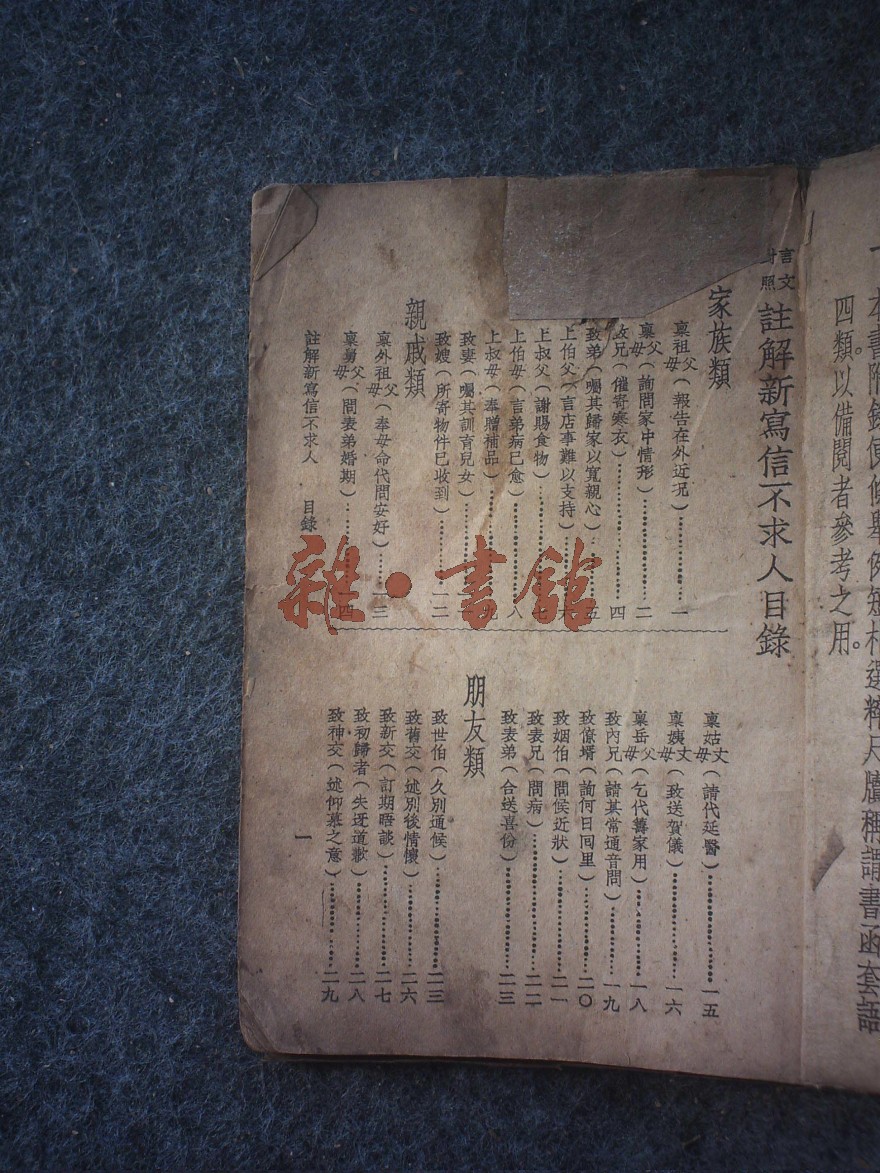 一 本書附錄便條舉例短札選粹尺牘稱謂書函套語
四類。以備閱者參考之用。
言文對照 註解新寫信不求人目錄
家族類
稟祖父母(報告在外近況)…………一
稟父母(詢問家中情形)…………二
致兄(催寄寒衣)…………四
致弟(囑其歸家以寬親心)…………五
上伯父(言店事難以支持)…………六
上叔父(謝賜食物)…………七
上伯母(言弟病已愈)…………八
上叔母(奉贈補品)…………九
致妻(囑其訓育兒女)
致嫂(所寄物件已收到)…………一二
親戚類
稟外祖父母(奉母命代問安好)…………一三
稟舅父母(問表弟婚期)…………一四
稟姑丈母(請代延醫)…………一五
稟姨丈母(致送賀儀)…………一六
稟岳父母(乞代籌家用)…………一八
致內兄(請其常通音問)…………一九
致僚壻(詢何日回里)…………二〇
致姻伯(問候近狀)…………二一
致表兄(問病)…………二二
致表弟(合送喜份)…………二三
朋友類
致世伯(久別通候)…………二三
致舊交(述別後情懷)…………二六
致新交(訂期晤談)…………二七
致初歸者(失迓道歉)…………二八
致神交(述仰慕之意)…………二九
註解新寫信不求人 目錄 一
雜·書館